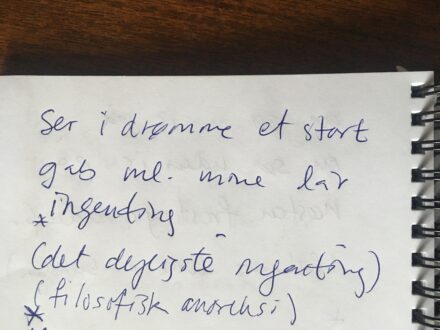 Ser i drømme et stort
gab ml. mine lår
*ingenting
(det dejligste ingenting)
*(filosofisk anoreksi)